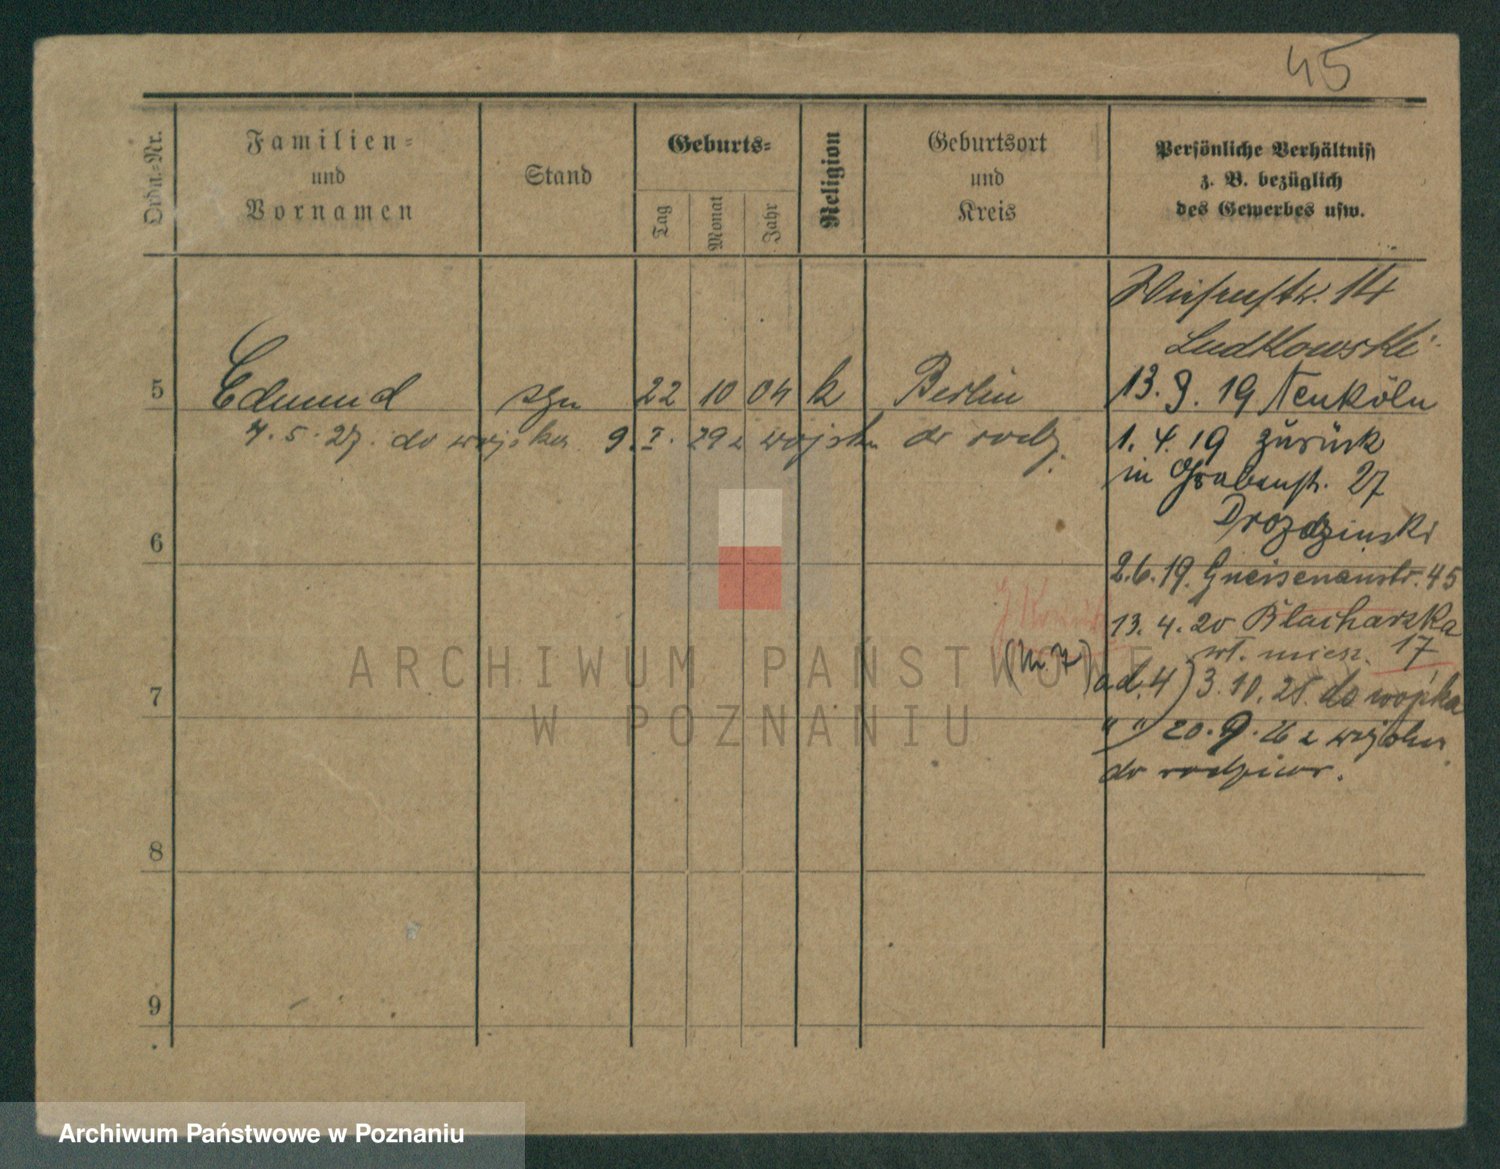 45
Ordn.-Nr.
Familien-
und
Vornamen
Stand
Geburts-
Tag
Monat
Jahr
Religion
Geburtsort
und
Kreis
Persönliche Verhältniß
z. B. bezüglich
des Gewerbes usw.
Wiesenstr. 14
Ludkowski
5 Edmund syn 22 10 04 k Berlin
13. 9. 19 Neuköln
7. 5. 27. do wojska 9. I. 29 z wojska do rodz.
1. 4. 19 zurück
in Grabenstr. 27
Drozdzinski
6
2.6.19. Gneisenaustr. 45
13. 4. 20 Blacharzka
wł. miesz. 17
7
ad. 4) 3. 10. 25. do wojska
" " 20. 9. 26 z wojska
do rodziców.
8
9
ARCHIWUM PAŃSTWOWE
W POZNANIU
Archiwum Państwowe w Poznaniu